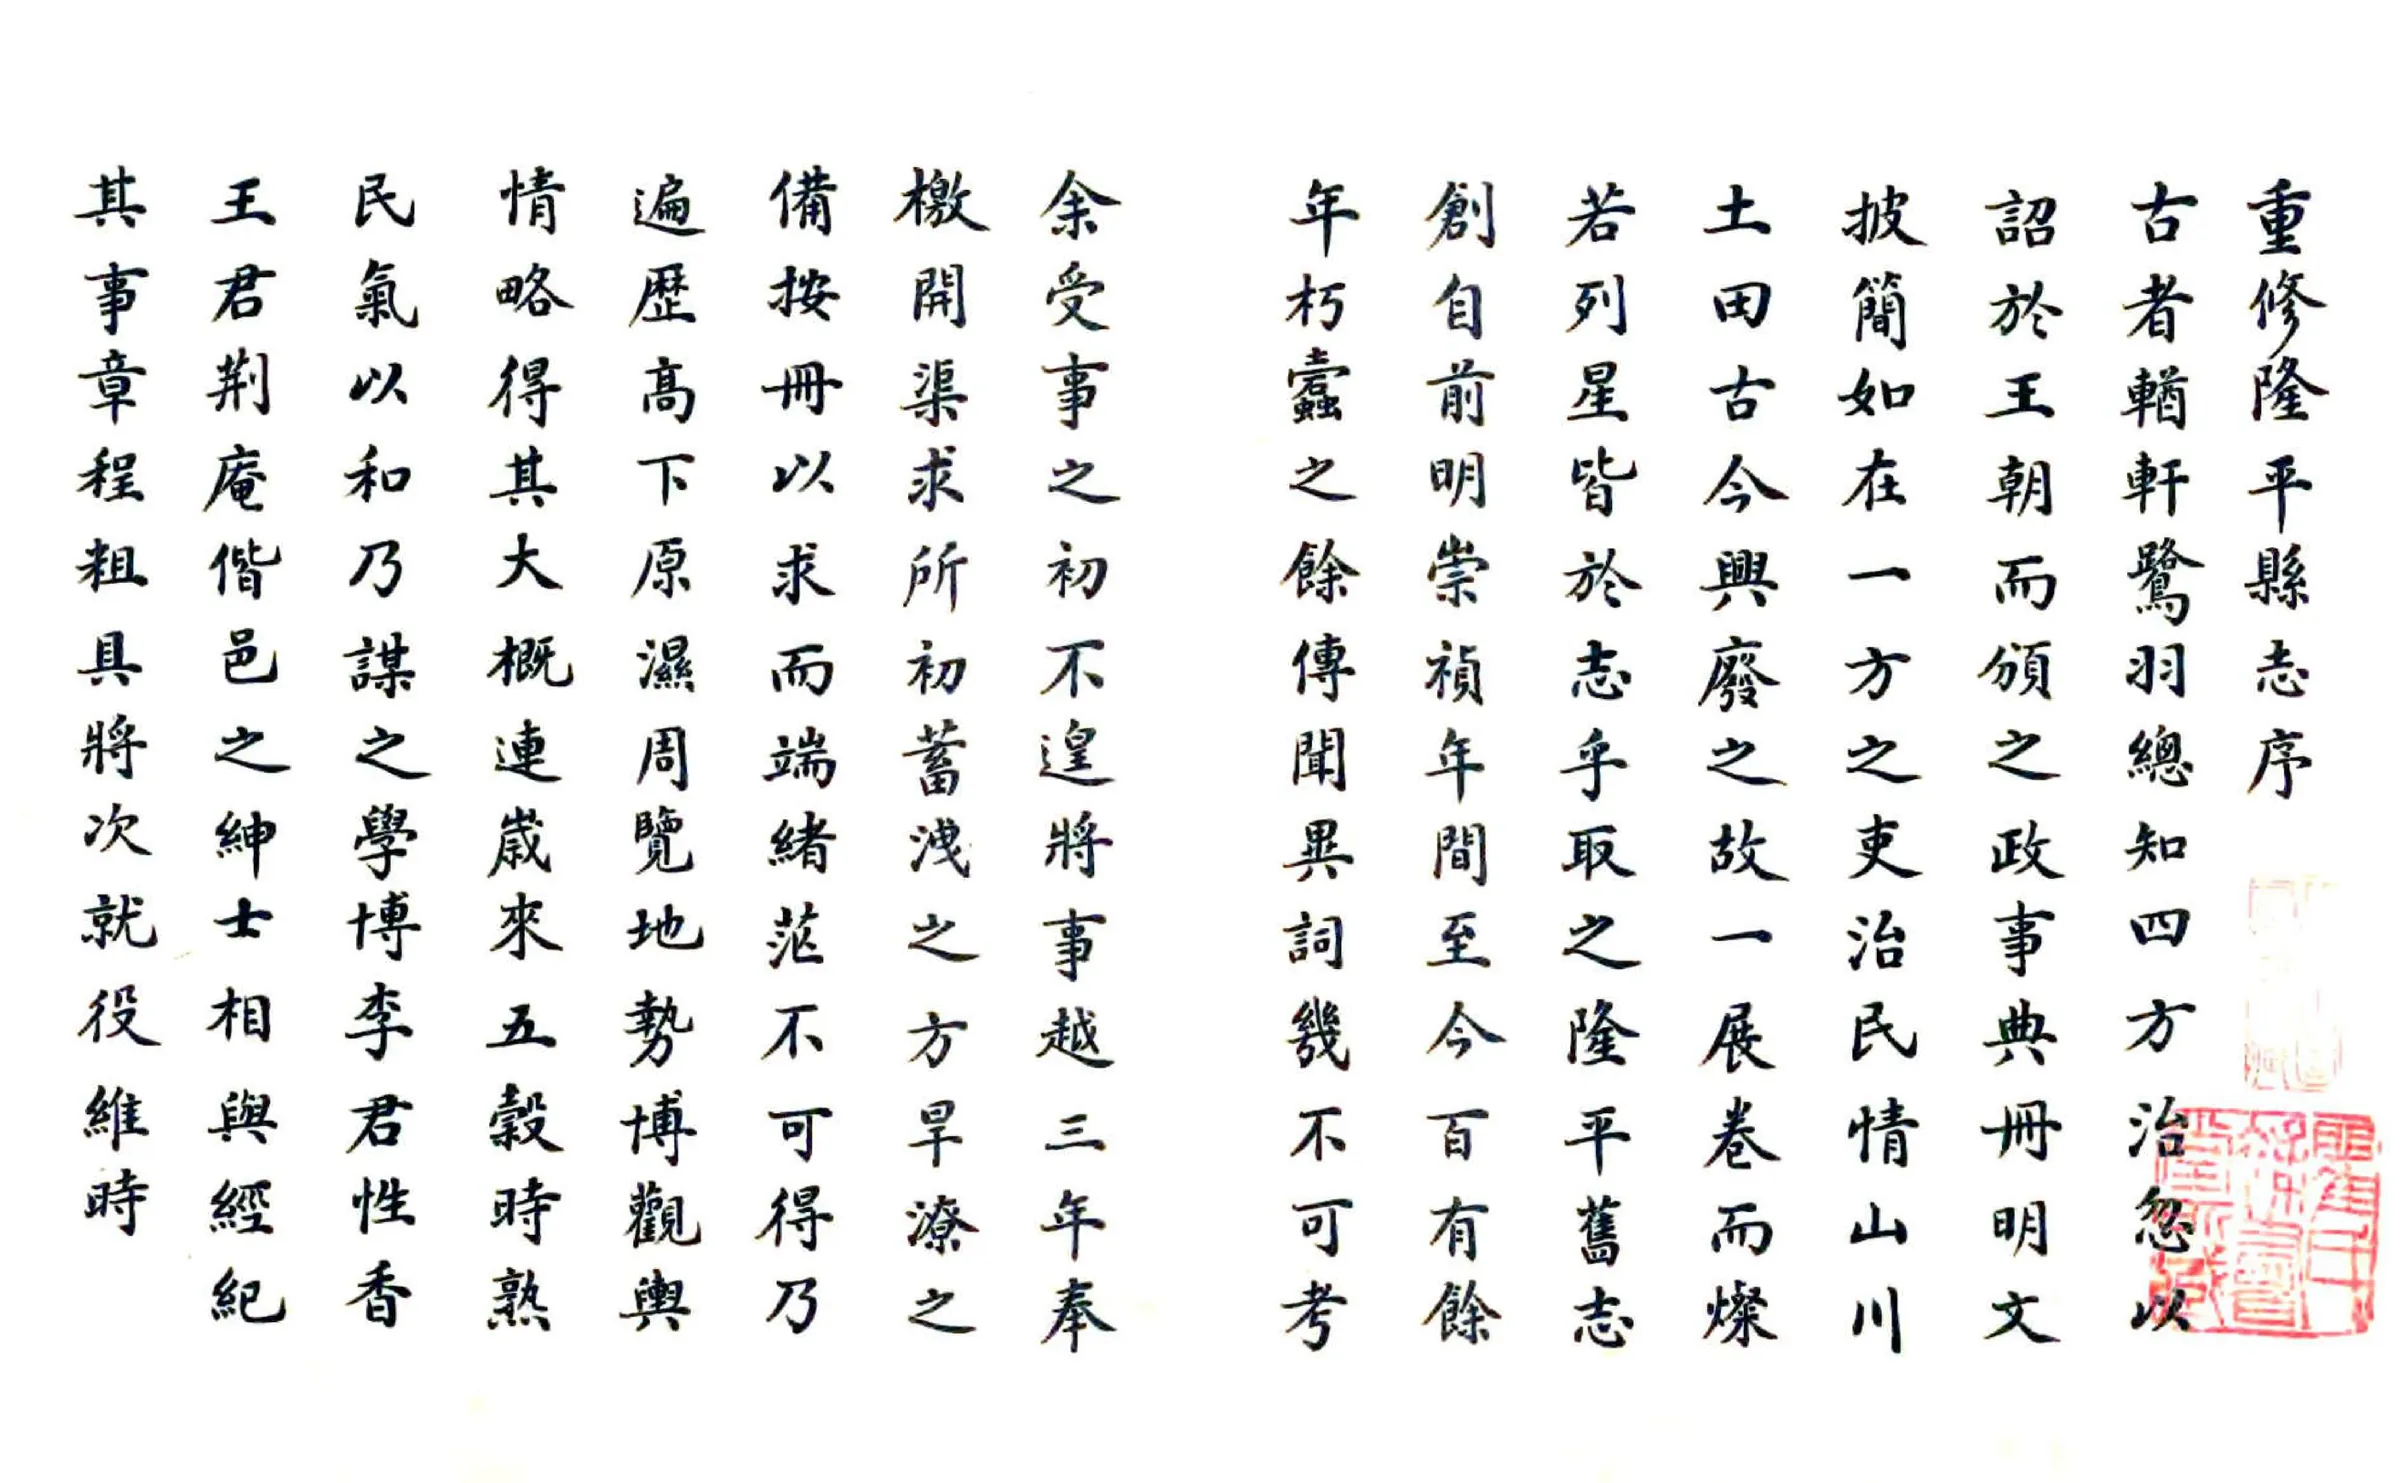 重修隆平縣志序
古者輶軒鷺羽總知四方治忽以
詔於王朝而頒之政事典冊明文
披簡如在一方之吏治民情山川
土田古今興廢之故一展卷而燦
若列星皆於志乎取之隆平舊志
創自前明崇禎年間至今百有餘
年朽蠹之餘傳聞異詞幾不可考
余受事之初不遑將事越三年奉
檄開渠求所初蓄洩之方旱潦之
備按冊以求而端緒茫不可得乃
遍歷高下原濕周覽地勢博觀輿
情略得其大概連歲來五穀時熟
民氣以和乃謀之學博李君性香
王君荆庵偕邑之紳士相與經紀
其事章程粗具將次就役維時